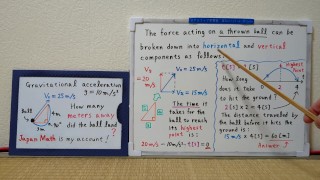 Gravitational acceleration
g = 10 m/s²
V₀ = 25 m/s
Ball
How many
meters away
did the ball land
?
Japan Math is my account!
The force acting on a thrown ball can be
broken down into horizontal and vertical
components as follows:
V₀ = 25 m/s
= 20
m/s
15 m/s
The time it
takes for the
ball to reach
its highest
point is:
20 m/s - 10 m/s² × t[s] = 0
Highest
Point
How long
does it take
to hit the ground?
2[s] × 2 = 4[s]
The distance traveled by
the ball before it hits the
ground is:
15 m/s × 4[s] = 60[m]
Answer